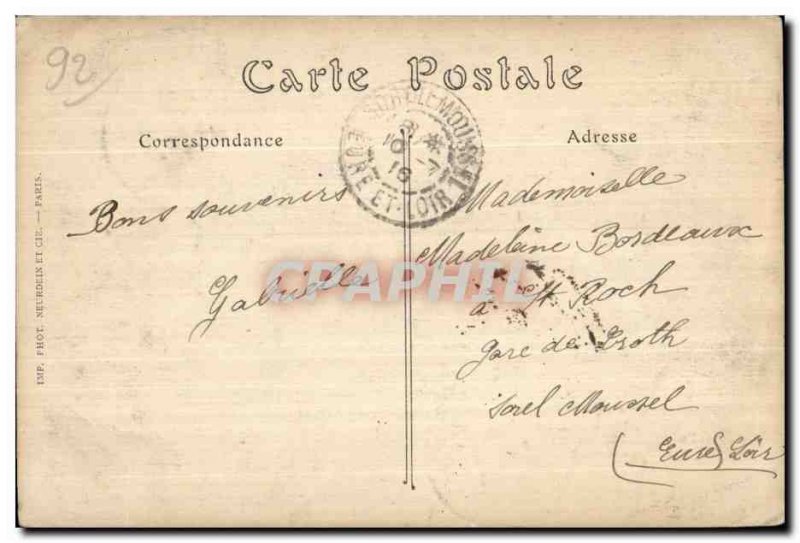 92
Carte Postale
Correspondance
Adresse
EURE-ET-LOIR
Bons souvenirs
Gabrielle
Mademoiselle
Madeleine Bordeaux
à St Roch
gare de
Sorel Moussel
(Eure & Loir
IMP. PHOT. NEURDEIN ET CIE. — PARIS.
CPAPHIL